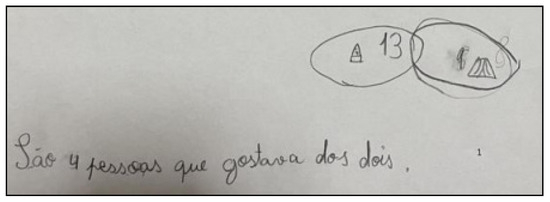 13
São 4 pessoas que gostava dos dois.
1